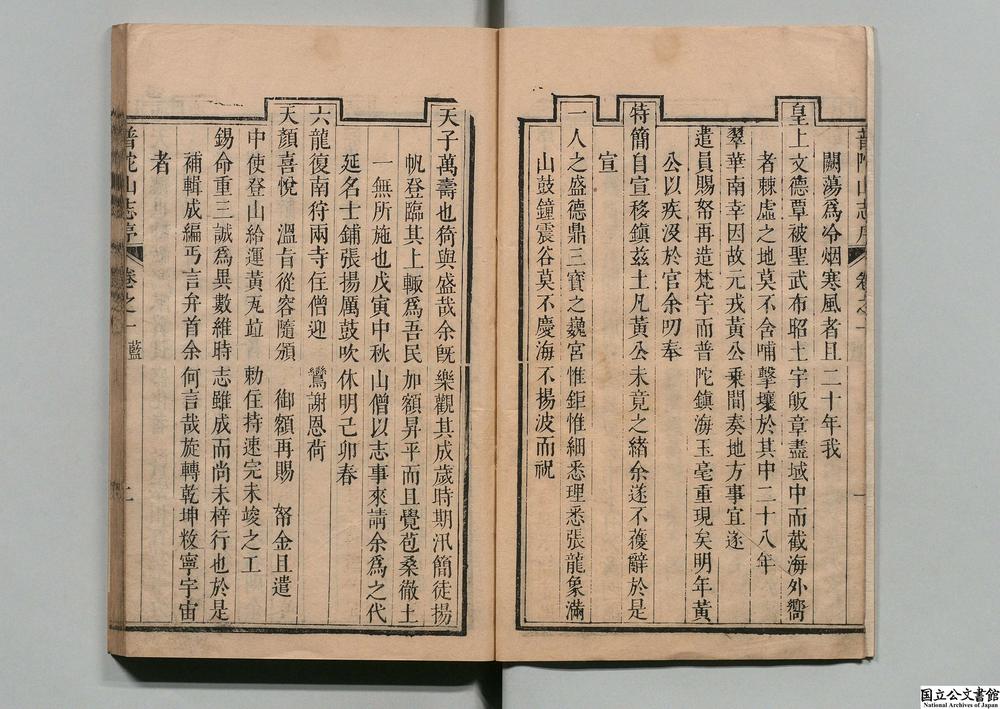 普陀山志序 卷之一
闕蕩爲冷烟寒風者且二十年我
皇上文德覃被聖武布昭土宇皈章盡域中而截海外嚮
者棘虛之地莫不含哺擊壤於其中二十八年
翠華南幸因故元戎黃公乗間奏地方事宜遂
遣員賜帑再造梵宇而普陀鎮海玉毫重現矣明年黃
公以疾沒於官余叨奉
特簡自宣移鎮兹土凡黃公未竟之緒余遂不獲辭於是
宣
一人之盛德鼎三寶之巍宮惟鉅惟細悉理悉張龍象滿
山鼓鐘震谷莫不慶海不揚波而祝
天子萬壽也猗與盛哉余既樂觀其成歲時期汛簡徒揚
帆登臨其上輙爲吾民加額昇平而且覺苞桑徹土
一無所施也戊寅中秋山僧以志事來請余爲之代
延名士鋪張揚厲鼓吹休明己卯春
六龍復南狩兩寺住僧迎 鸞謝恩荷
天顏喜悅 溫旨從容隨頒 御額再賜 帑金且遣
中使登山給運黃瓦竝 勅住持速完未竣之工
錫命重三誠爲異數維時志雖成而尚未梓行也於是
補輯成編丐言弁首余何言哉旋轉乾坤敉寧宇宙
者
普陀山志序 卷之一 藍 二
国立公文書館
National Archives of Japan